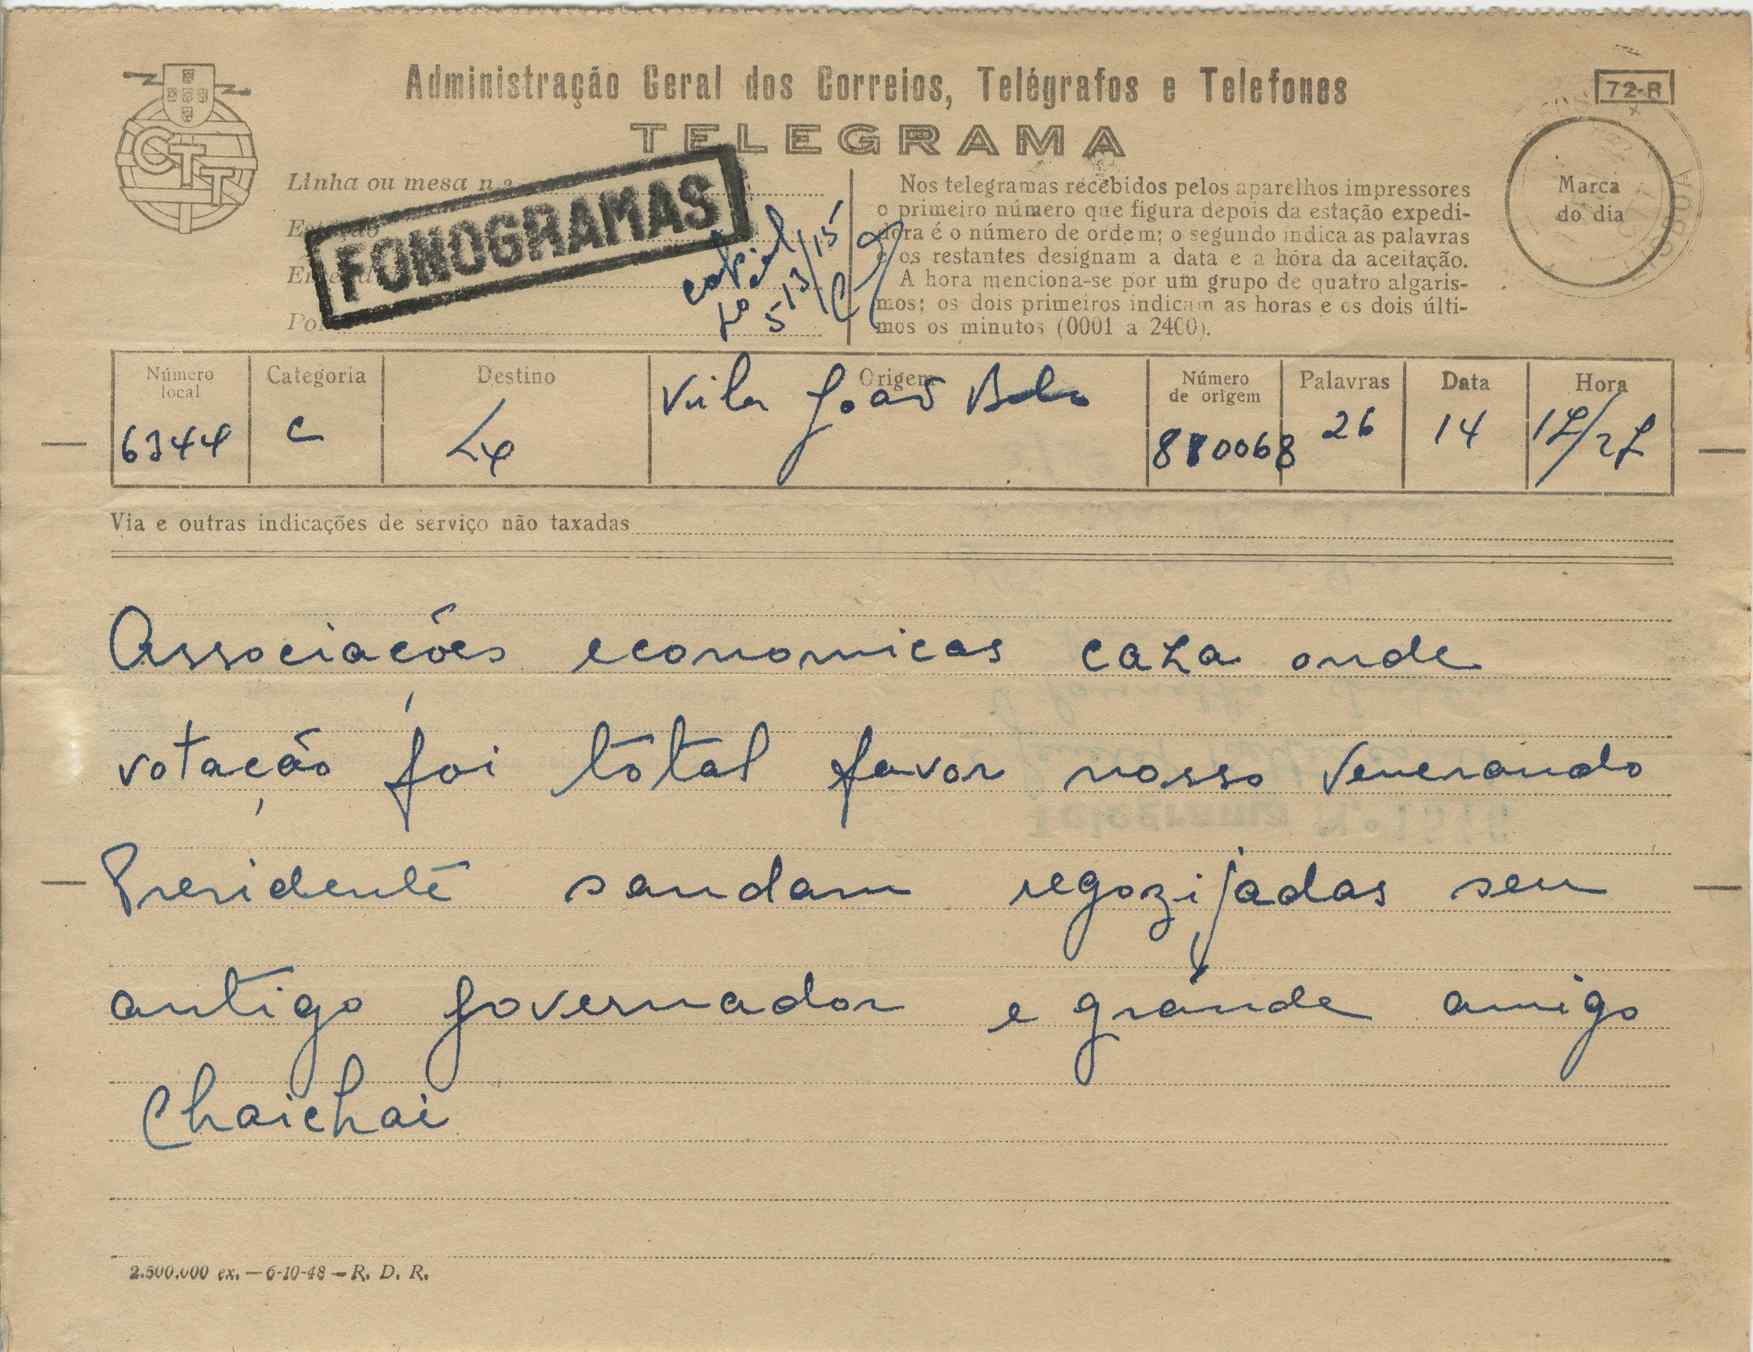 Administração Geral dos Correios, Telégrafos e Telefones
72-R
TELEGRAMA
CTT
Linha ou mesa n.º
FONOGRAMAS
Nos telegramas recebidos pelos aparelhos impressores
o primeiro número que figura depois da estação expedi-
dora é o número de ordem; o segundo indica as palavras
e os restantes designam a data e a hora da aceitação.
A hora menciona-se por um grupo de quatro algaris-
mos; os dois primeiros indicam as horas e os dois últi-
mos os minutos (0001 a 2400).
Marca
do dia
LISBOA
Número local Categoria Destino Origem Número de origem Palavras Data Hora
6344 C Lx Vila João Belo 880068 26 14 17/27
Via e outras indicações de serviço não taxadas
Associações economicas caza onde
votação foi total favor nosso Venerando
Presidente saudam regozijadas seu
antigo governador e grande amigo
Chaichai
2.500.000 ex. — 6-10-48 — R. D. R.